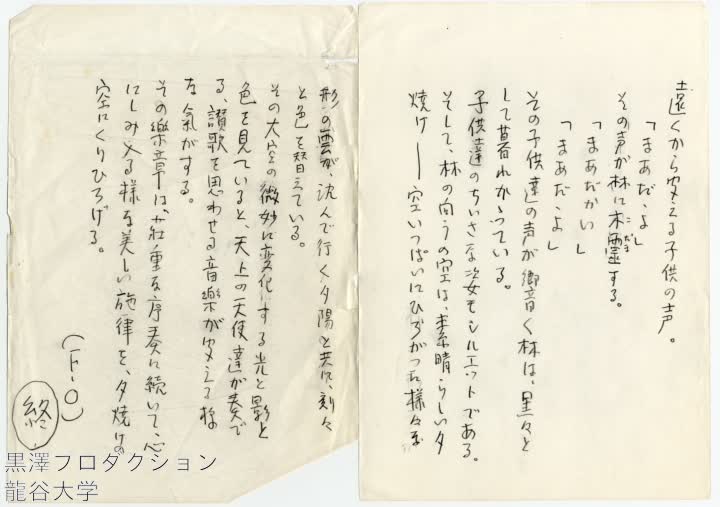 遠くから聞える子供の声。
「まあだゝよ」
その声が林に木霊する。
こだま
「まあだかい」
「まあだゝよ」
その子供達の声が響く林は、黒々と
して暮れかゝっている。
子供達のちいさな姿もシルエットである。
そして、林の向うの空は、素晴らしい夕
焼け──空いっぱいにひろがった様々な
形の雲が、沈んで行く夕陽と共に、刻々
と色を替えている。
その大空の微妙に変化する光と影と
色を見ていると、天上の天使達が奏で
る、讃歌を思わせる音樂が聞える様
な気がする。
その樂章は、荘重な序奏に続いて、心
にしみ入る様な美しい旋律を、夕焼けの
空にくりひろげる。
(F・O)
終
黒澤プロダクション
龍谷大学